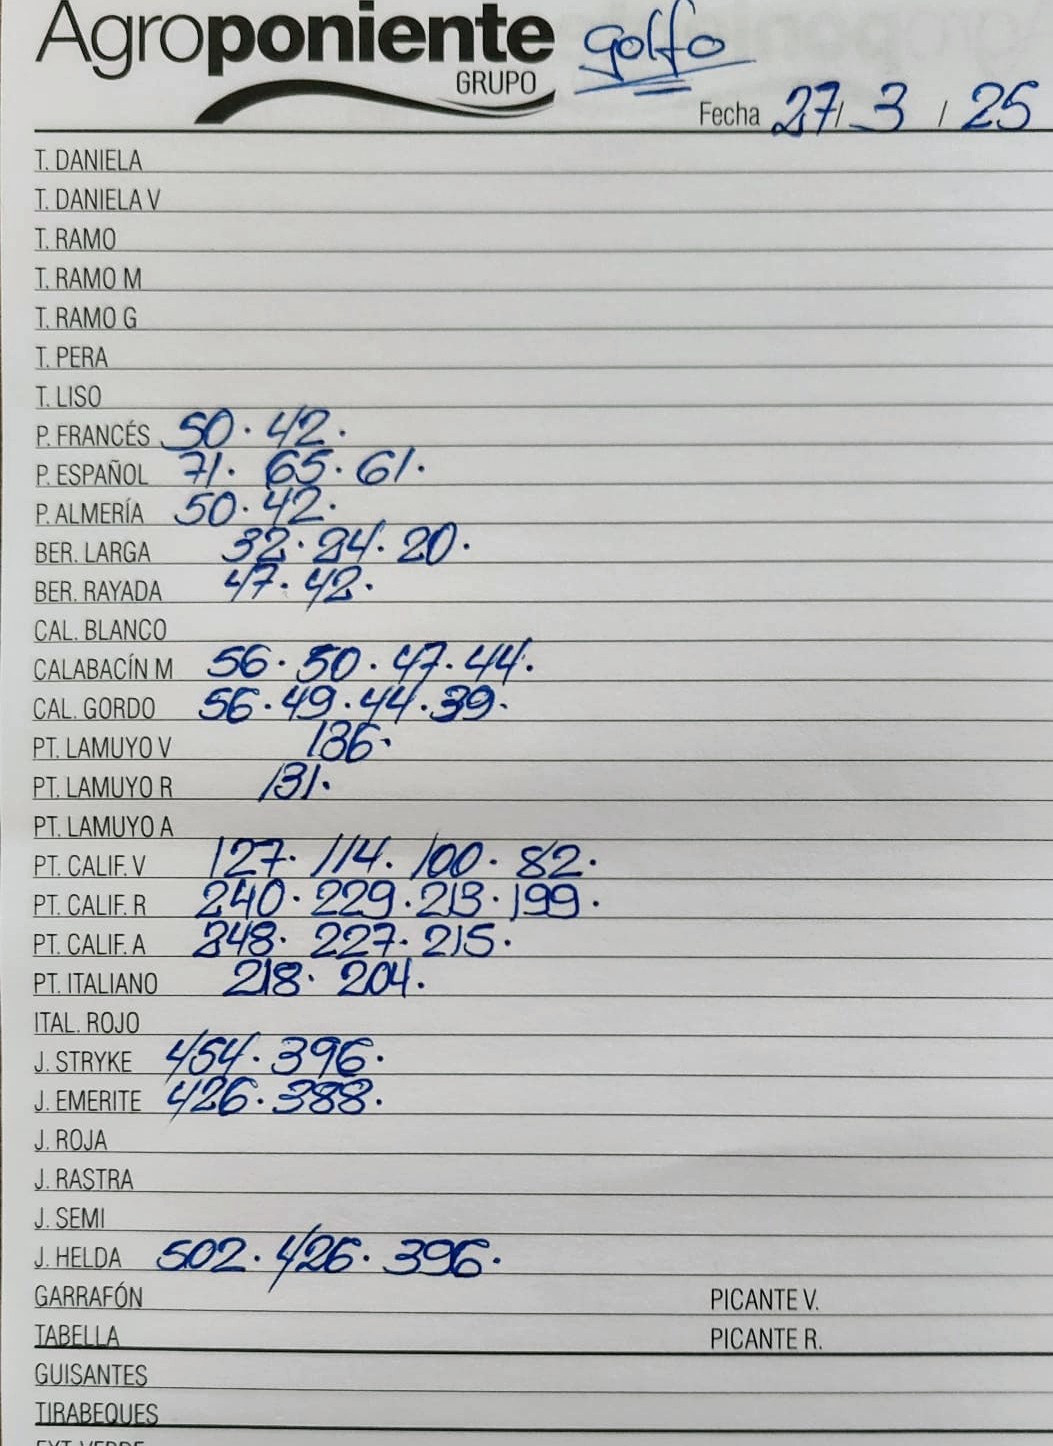 Agroponiente golfo
GRUPO
Fecha 27/ 3 / 25
T. DANIELA
T. DANIELA V
T. RAMO
T. RAMO M
T. RAMO G
T. PERA
T. LISO
P. FRANCÉS 50. 42.
P. ESPAÑOL 71. 65. 61.
P. ALMERÍA 50. 42.
BER. LARGA 32. 24. 20.
BER. RAYADA 47. 42.
CAL. BLANCO
CALABACÍN M 56. 50. 47. 44.
CAL. GORDO 56. 49. 44. 39.
PT. LAMUYO V 136.
PT. LAMUYO R 131.
PT. LAMUYO A
PT. CALIF. V 127. 114. 100. 82.
PT. CALIF. R 240. 229. 213. 199.
PT. CALIF. A 248. 227. 215.
PT. ITALIANO 218. 204.
ITAL. ROJO
J. STRYKE 454. 396.
J. EMERITE 426. 388.
J. ROJA
J. RASTRA
J. SEMI
J. HELDA 502. 426. 396.
GARRAFÓN PICANTE V.
TABELLA PICANTE R.
GUISANTES
TIRABEQUES